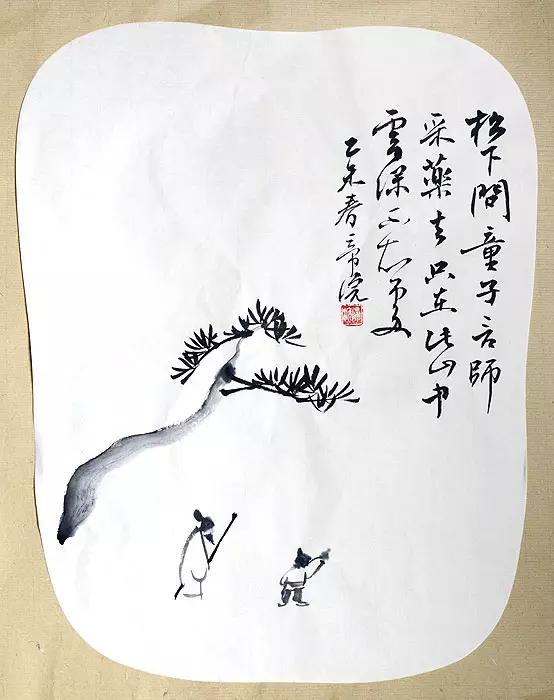 松下問童子言師
采藥去只在此山中
雲深不知處
乙未春